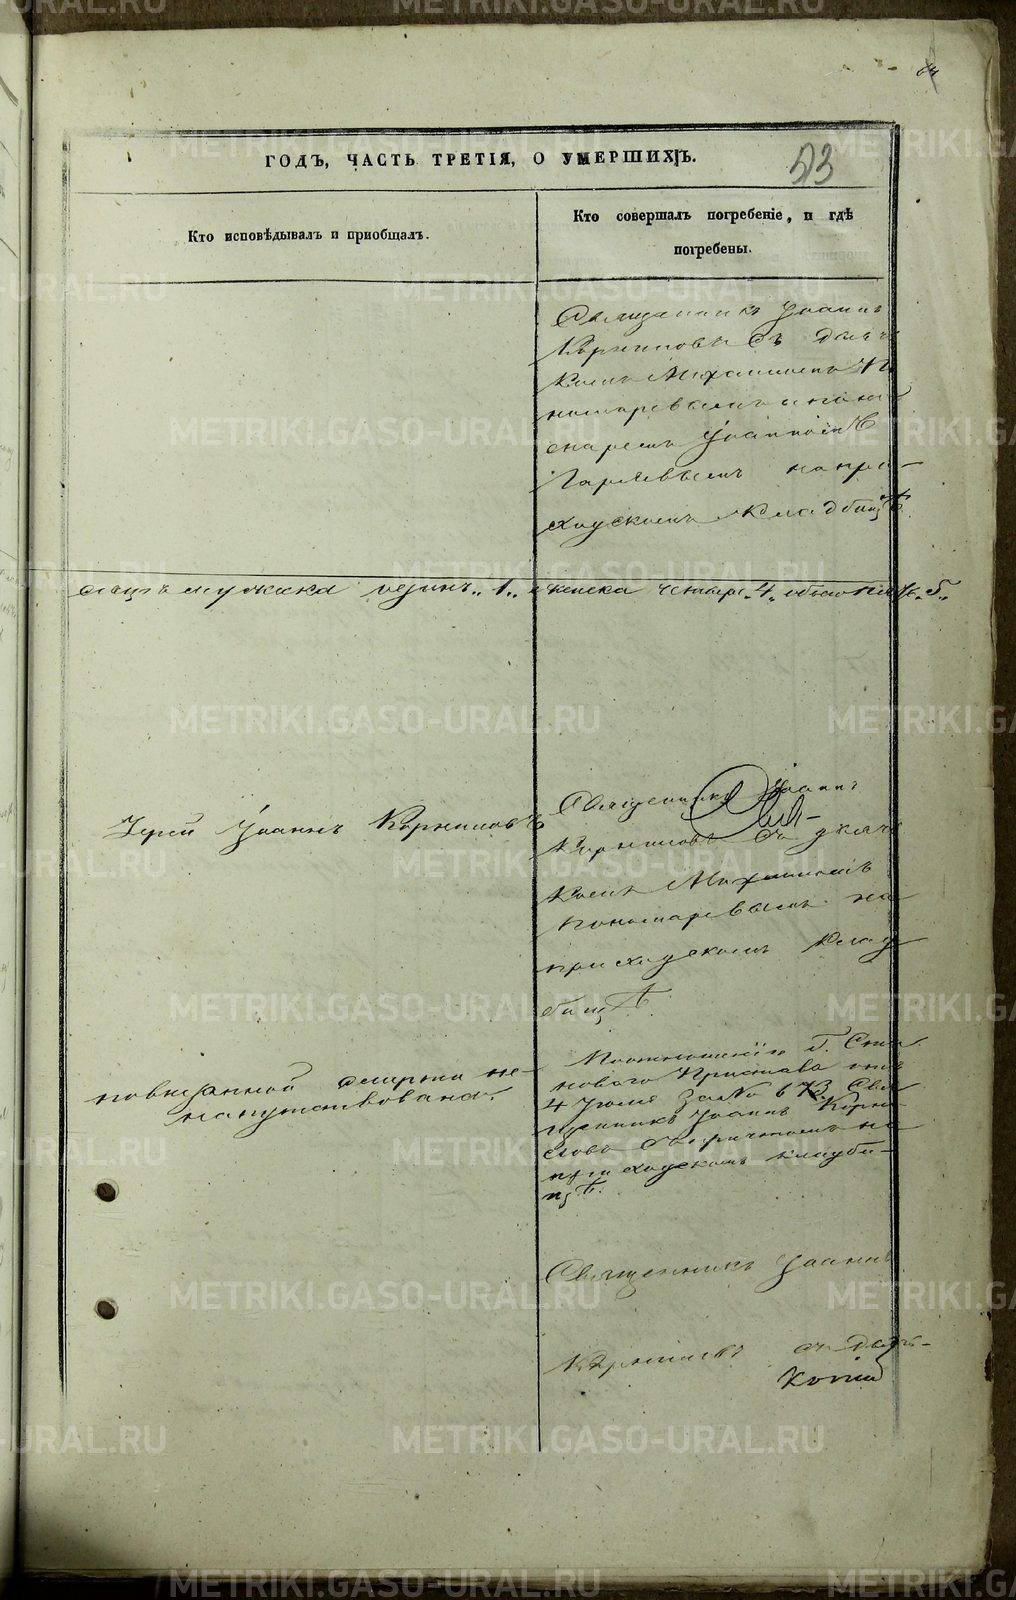 64
ГОДЪ, ЧАСТЬ ТРЕТІЯ, О УМЕРШИХЪ.
53
Кто исповѣдывалъ и приобщалъ.
Кто совершалъ погребеніе, и гдѣ
погребены.
Священникъ Іоаннъ
Корниловъ съ дьяч
комъ Михаиломъ По
номаревымъ и поно
маремъ Іоанномъ
на при-
ходскомъ кладбищѣ
мужска одинъ „1„ женска четыре „4„ обоего пола „5„
Іерей Іоаннъ Корниловъ
Священникъ Іоаннъ
Корниловъ съ дьяч
комъ Михаиломъ
Пономаревымъ на
приходскомъ клад
бищѣ
смерти не
напутствована.
По отношенію Г. Ста
новаго Пристава отъ
4 Іюля за № 673 Свя
щенникъ Іоаннъ Корни
ловъ съ причтомъ на
приходскомъ кладби-
щѣ.
Священникъ Іоаннъ
Корниловъ съ дьяч-
METRIKI.GASO-URAL.RU